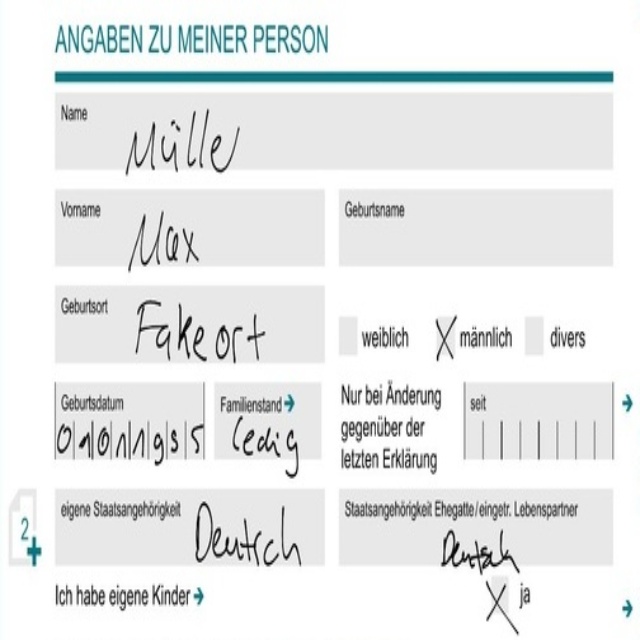 ANGABEN ZU MEINER PERSON
Name
Müller
Vorname
Max
Geburtsname
Geburtsort
Fakeort
weiblich männlich divers
Geburtsdatum
01011985
Familienstand →
ledig
Nur bei Änderung
gegenüber der
letzten Erklärung
seit
→
2+
eigene Staatsangehörigkeit
Deutsch
Staatsangehörigkeit Ehegatte/eingetr. Lebenspartner
Deutsch
Ich habe eigene Kinder →
ja
→